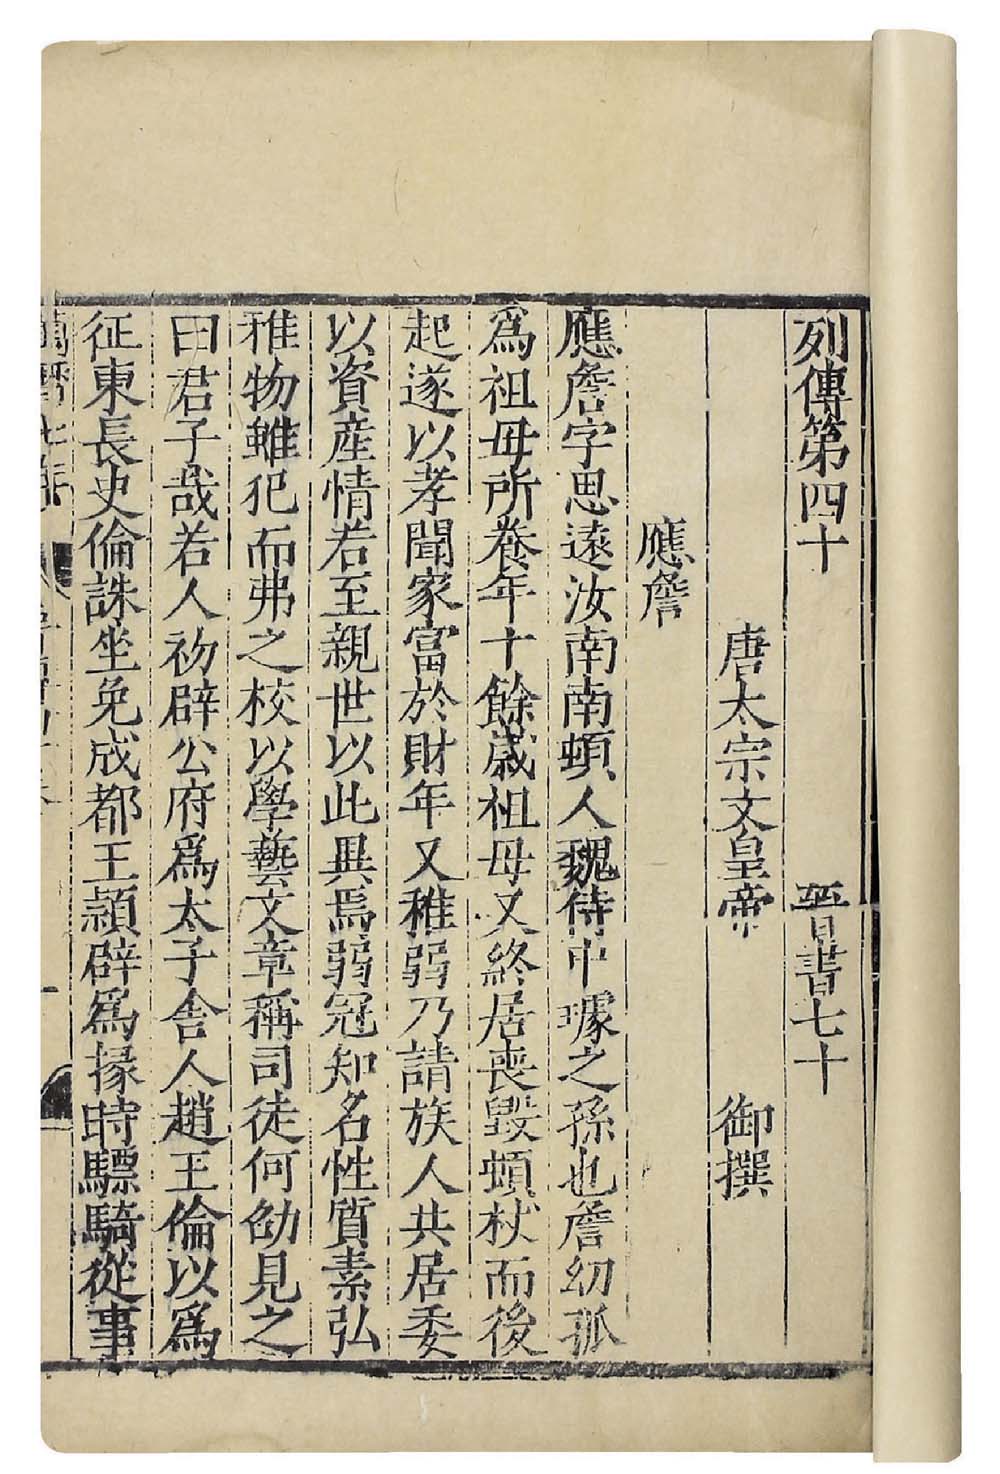 列傳第四十 晉書七十
唐太宗文皇帝 御撰
應詹
應詹字思遠汝南南頓人魏侍中璩之孫也詹幼孤
爲祖母所養年十餘歲祖母又終居喪毀頓杖而後
起遂以孝聞家富於財年又稚弱乃請族人共居委
以資産情若至親世以此異焉弱冠知名性質素弘
雅物雖犯而弗之校以學藝文章稱司徒何劭見之
曰君子哉若人初辟公府爲太子舍人趙王倫以爲
征東長史倫誅坐免成都王穎辟爲掾時驃騎從事